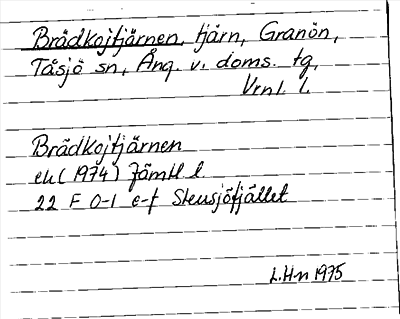 Brädkojtjärnen, tjärn, Granön,
Tåsjö sn, Ång. v. doms. tg,
Vrnl. l.
Brädkojtjärnen
ek (1974) Jämtl l.
22 F 0-1 e-f Stensjöfjället
L.H-n 1975